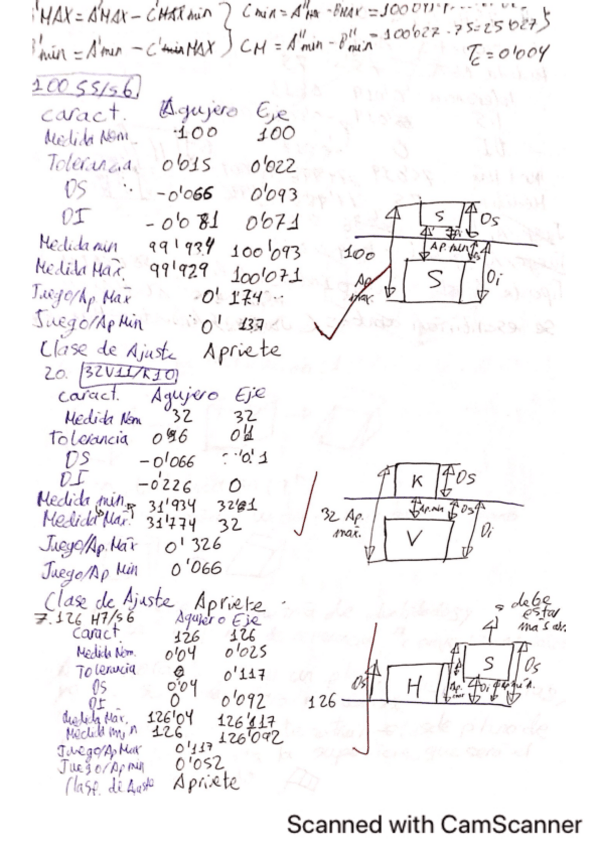 MAX = A'MAX - C'MAX min } Cmin = A''
min = A'min - C'minMAX } CM = A''min - B''min = 100'027 - 75 = 25'027 }
Tc = 0'004
100 S5/s6
Caract. Agujero Eje
Medida Nom 100 100
Tolerancia 0'015 0'022
DS -0'066 0'093
DI -0'081 0'071
Medida min 99'934 100'093
Medida Máx. 99'929 100'071
Juego/Ap Max 0'174
Juego/Ap Min 0'137
Clase de Ajuste Apriete
100
S
Ds
Ap. min
Ap max.
S
Di
20. 32V11/K10
Caract. Agujero Eje
Medida Nom 32 32
Tolerancia 0'1
DS -0'066 0'1
DI -0'226 0
Medida min 31'934
Medida Max. 31'774 32
Juego/Ap. Max 0'326
Juego/Ap Min 0'066
Clase de Ajuste Apriete
K
Ds
32 Ap. max.
Ap. min
Ds
V
Di
7. 126 H7/s6 Agujero Eje
Caract. 126 126
Medida Nom. 0'04 0'025
Tolerancia 0'117
DS 0'04
DI 0 0'092
Medida Max. 126'04 126'117
Medida min 126 126'092
Juego/Ap Max 0'117
Juego/Ap min 0'052
Clase de Ajuste Apriete
debe estar
más ar.
126
Ds
H
S
Ds
Di
Scanned with CamScanner